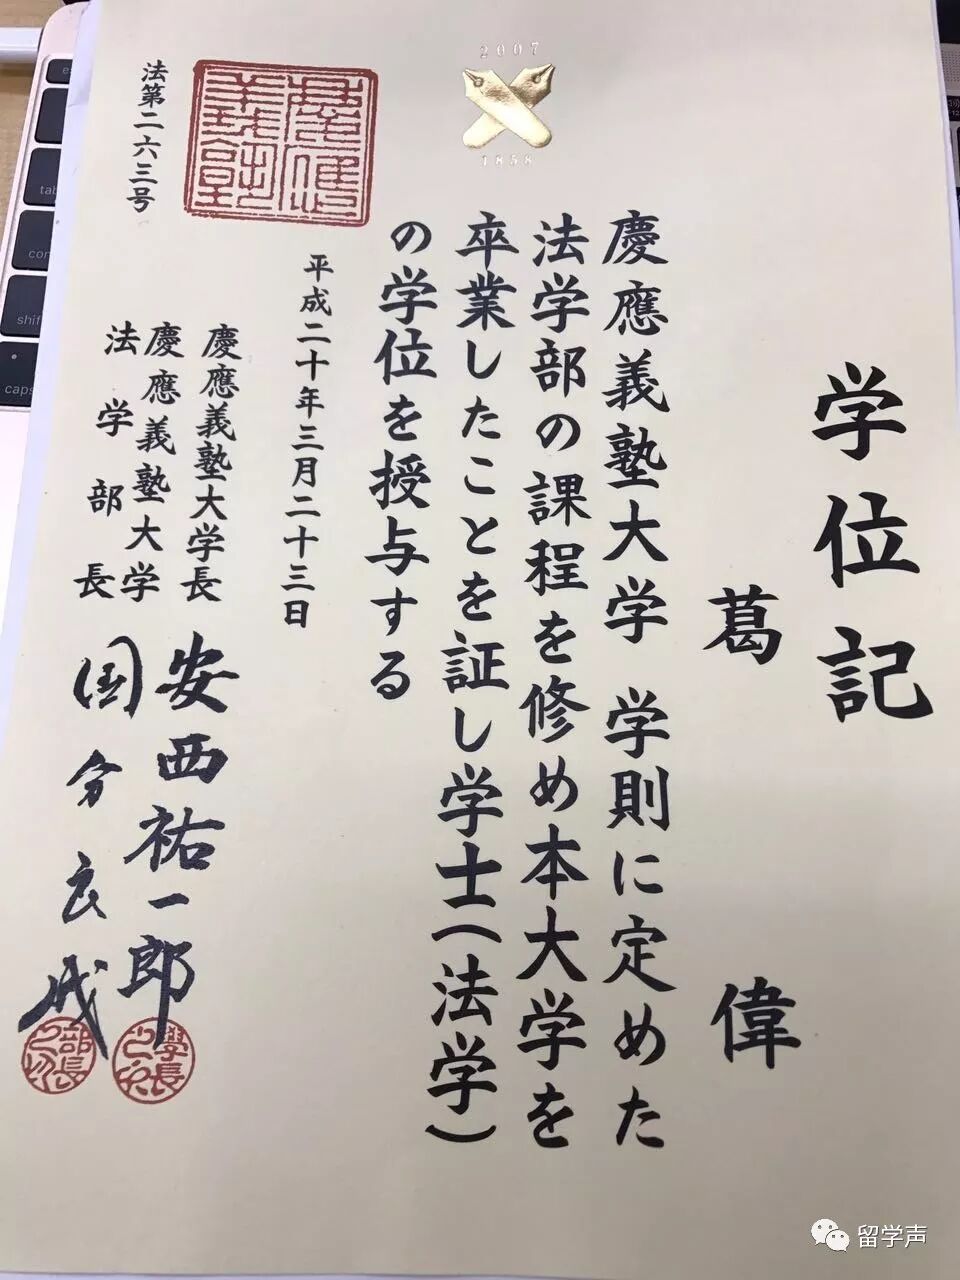 学位記
葛 偉
慶應義塾大学 学則に定めた
法学部の課程を修め本大学を
卒業したことを証し学士(法学)
の学位を授与する
平成二十年三月二十三日
慶應義塾大学長 安西祐一郎
慶應義塾大学
法学部長 国分良成
法第二六三号
2007
1858
慶應
義塾
學長
部長
tab
shif
caps
留学声